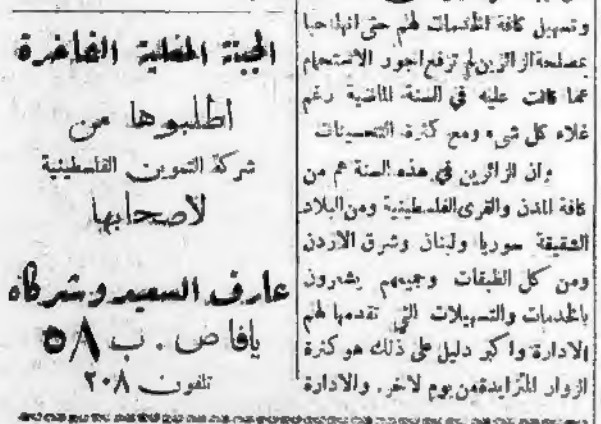 وتسهيل كافة الخدمات لهم حتى انها حبا
بمصلحة الزائرين لم ترفع اجور الاستحمام
عما كانت عليه في السنة الماضية رغم
غلاء كل شيء ومع كثرة التحسينات
وان الزائرين في هذه السنة هم من
كافة المدن والقرى الفلسطينية ومن البلاد
الشقيقة سوريا ولبنان وشرق الاردن
ومن كل الطبقات وجميعهم يشعرون
بالخدمات والتسهيلات التي تقدمها لهم
الادارة واكبر دليل على ذلك هو كثرة
الزوار المتزايدة من يوم لاخر. والادارة
الجبنة المغلية الفاخرة
اطلبوها من
شركة التموين الفلسطينية
لأصحابها
عارف السعيد وشركاه
يافا ص. ب ٥٨
تلفون ٢٠٨